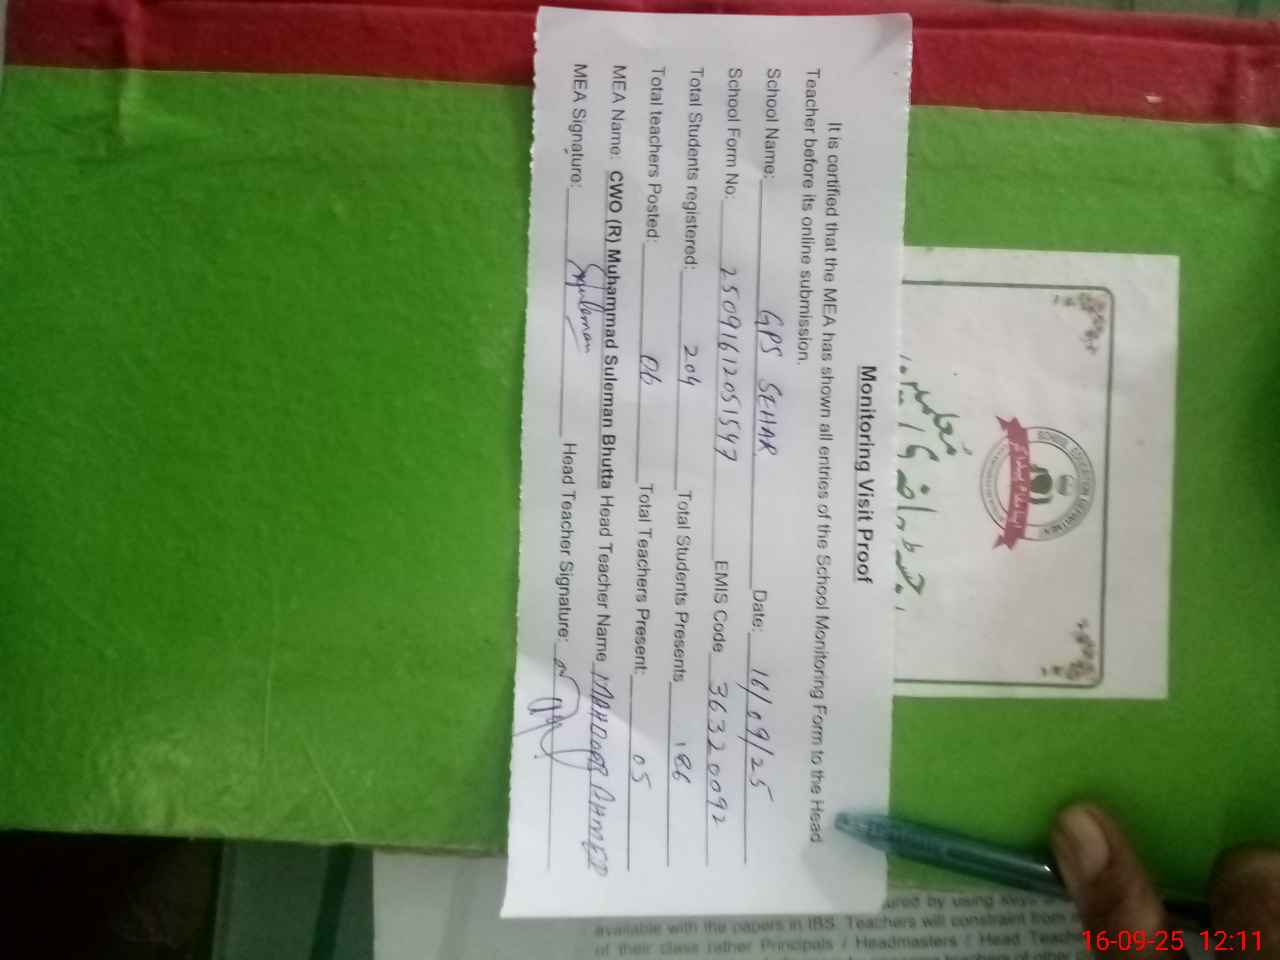 Monitoring Visit Proof
It is certified that the MEA has shown all entries of the School Monitoring Form to the Head
Teacher before its online submission.
School Name: GPS SEHAR Date: 16/09/25
School Form No: 25091612051547 EMIS Code 36320092
Total Students registered: 204 Total Students Presents 186
Total teachers Posted: 06 Total Teachers Present: 05
MEA Name: CWO (R) Muhammad Suleman Bhutta Head Teacher Name MAHBOOB AHMED
MEA Signature: Suleman Head Teacher Signature:
SCHOOL EDUCATION DEPARTMENT
by using
available with the papers in IBS. Teachers will constraint from
of their class rather Principals / Headmasters / Head
16-09-25 12:11